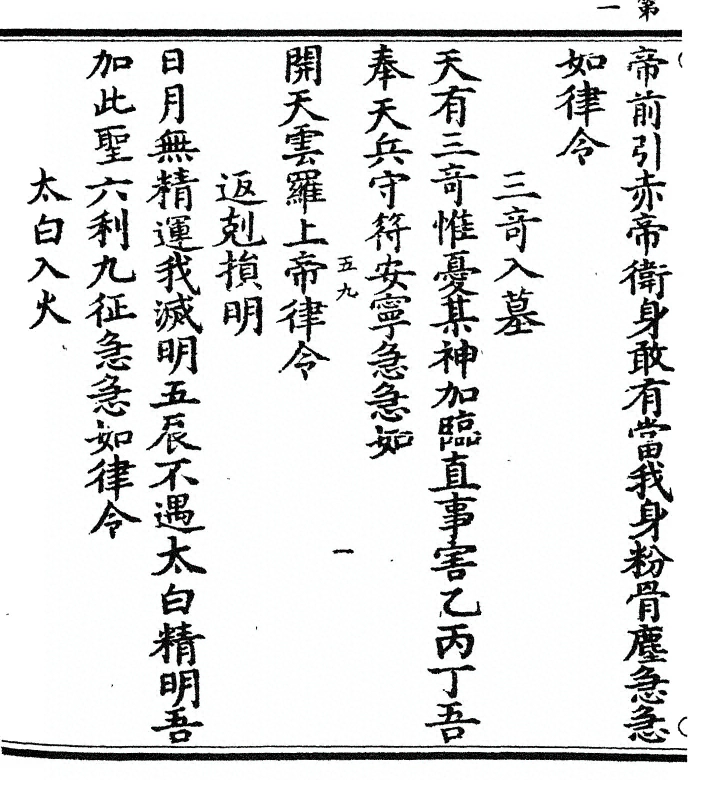 第一
帝前引赤帝衛身敢有當我身粉骨塵急急
如律令
三竒入墓
天有三竒惟憂某神加臨直事害乙丙丁吾
奉天兵守符安寧急急如
五九
一
開天雲羅上帝律令
返剋損明
日月無精運我滅明五辰不遇太白精明吾
加此聖六利九征急急如律令
太白入火